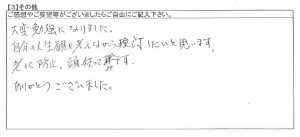 【3】その他
ご感想やご要望等がございましたらご自由にご記入下さい。
大変勉強になりました。
自分の人生観を考えながら検討したいと思います。
老化防止、頭使って
ありがとうございました。